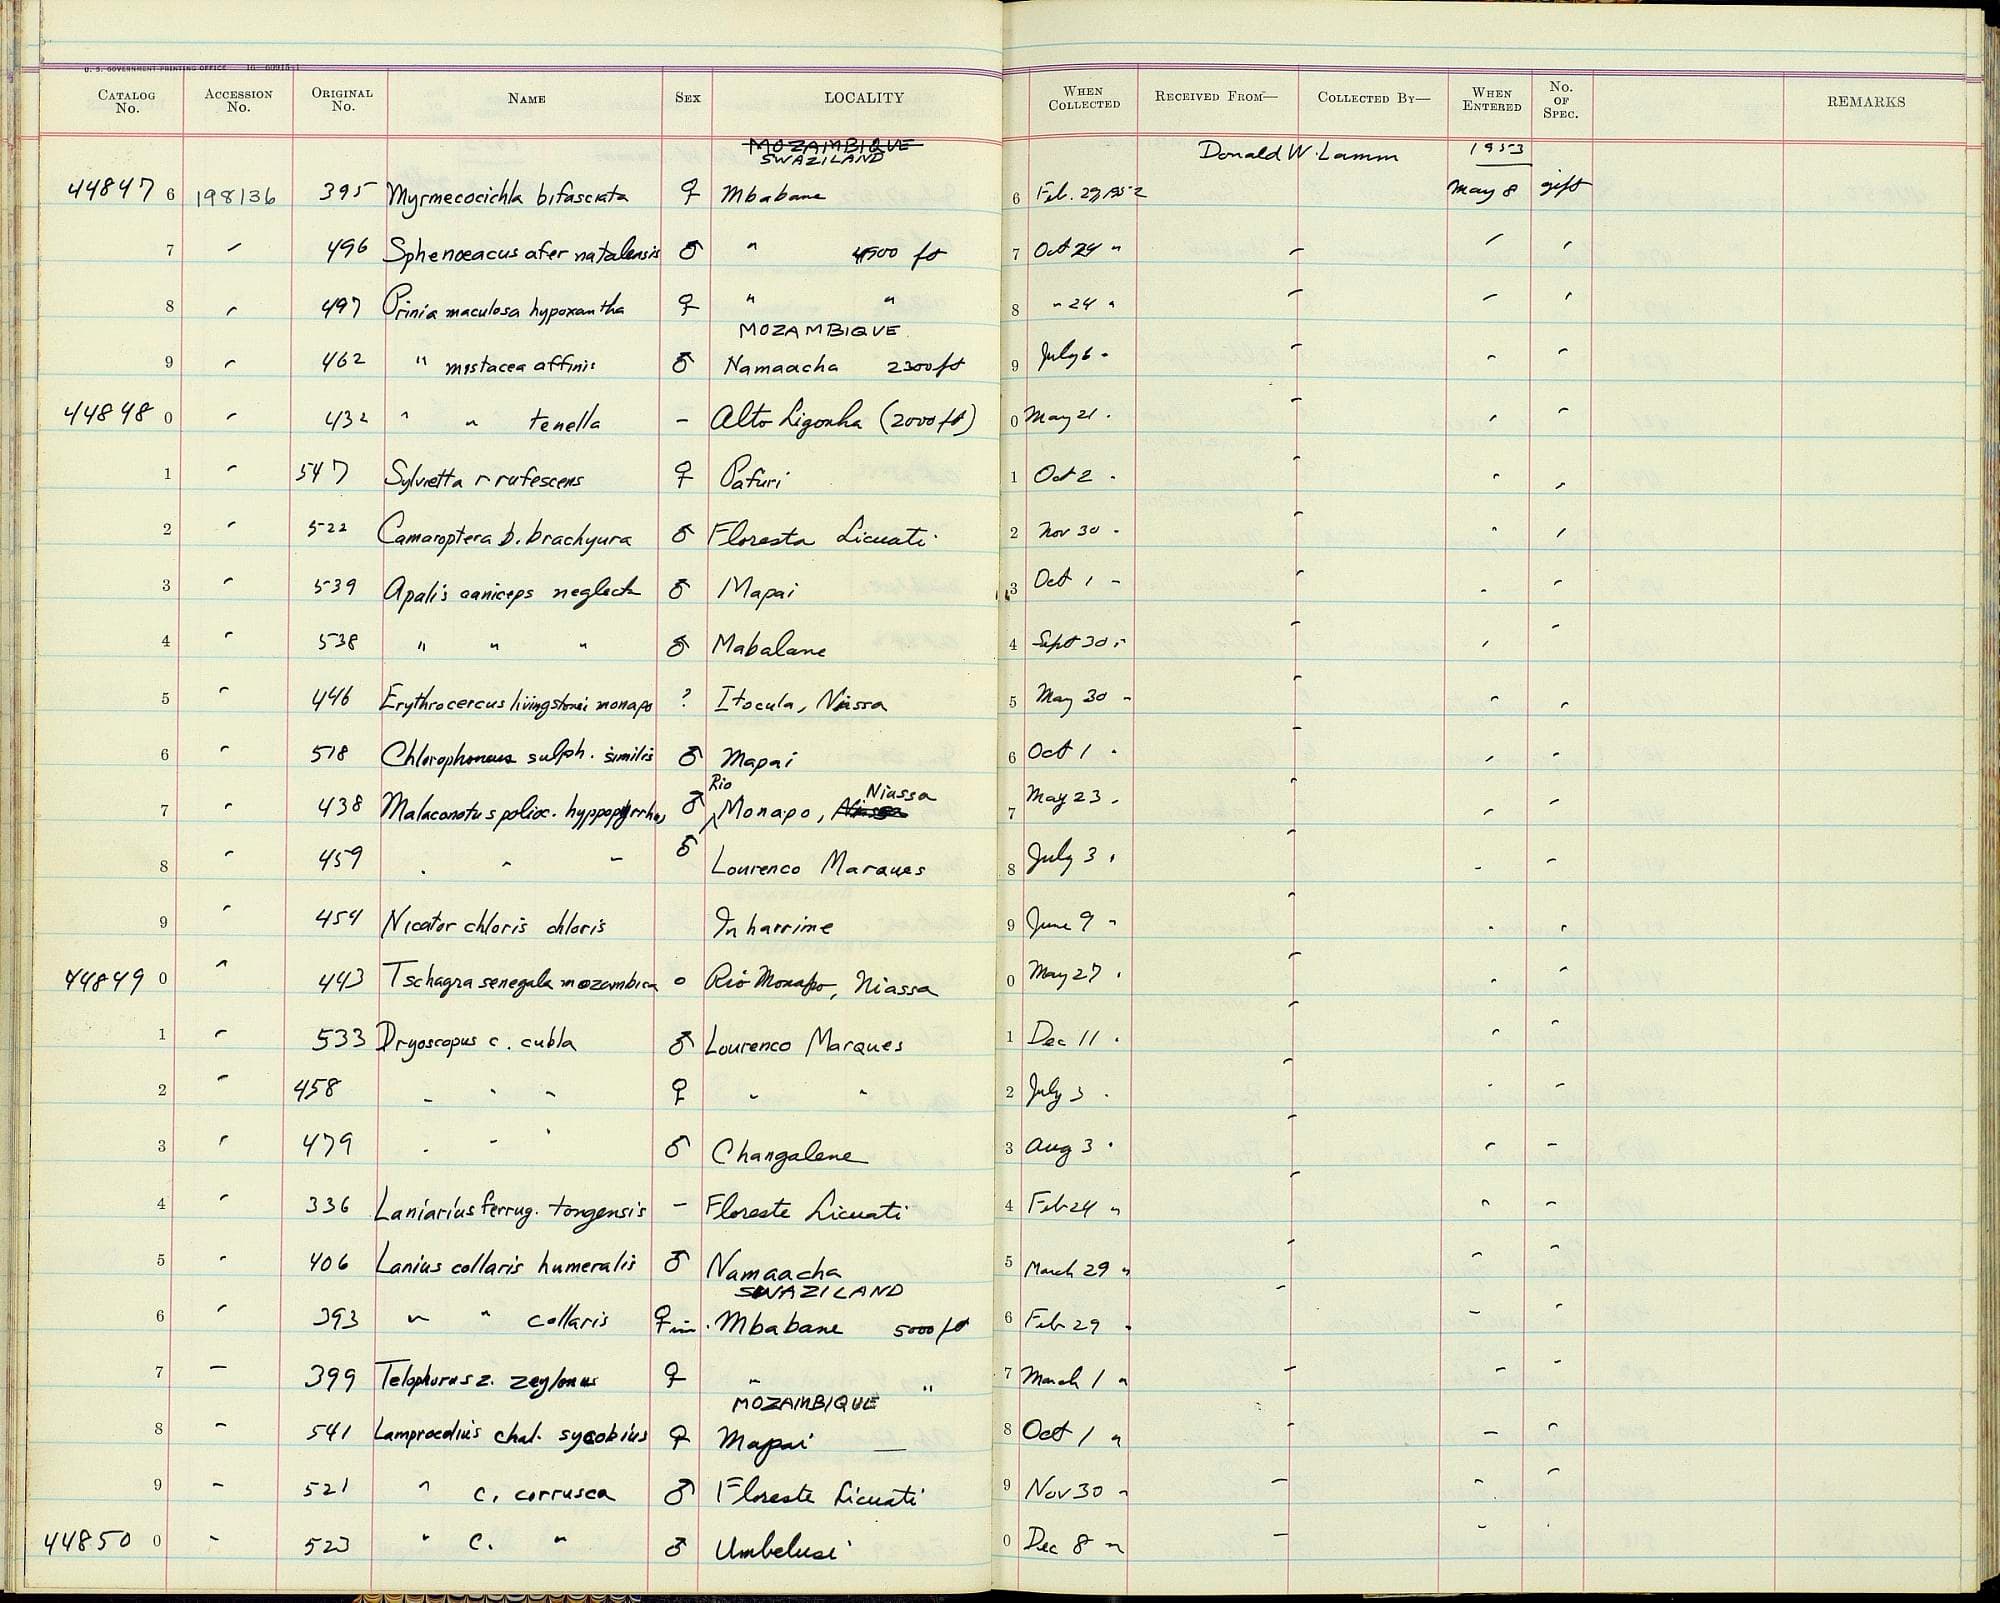 U. S. GOVERNMENT PRINTING OFFICE 16—60915-1
CATALOG No. ACCESSION No. ORIGINAL No. NAME SEX LOCALITY WHEN COLLECTED RECEIVED FROM— COLLECTED BY— WHEN ENTERED No. OF SPEC. REMARKS
MOZAMBIQUE
SWAZILAND Donald W. Lamm 1953
44847 6 198136 395 Myrmecocichla bifasciata ♀ Mbabane 6 Feb. 29, 1952 May 8 gift
7 " 496 Sphenoeacus afer natalensis ♂ " 4500 ft 7 Oct 24 " " " "
8 " 497 Prinia maculosa hypoxantha ♀ " " 8 " 24 " " " "
MOZAMBIQUE
9 " 462 " mistacea affinis ♂ Namaacha 2300 ft 9 July 6 " " " "
44848 0 " 432 " " tenella – Alto Ligonha (2000 ft) 0 May 21 " " " "
1 " 547 Sylvietta r rufescens ♀ Pafuri 1 Oct 2 " " " "
2 " 522 Camaroptera b. brachyura ♂ Floresta Licuati 2 Nov 30 " " " "
3 " 539 Apalis caniceps neglecta ♂ Mapai 3 Oct 1 " " " "
4 " 538 " " " ♂ Mabalane 4 Sept 30 " " " "
5 " 446 Erythrocercus livingstonei monapo ? Itocula, Niassa 5 May 30 " " " "
6 " 518 Chlorophoneus sulph. similis ♂ Mapai 6 Oct 1 " " " "
7 " 438 Malaconotus polioc. hyppopyrrhus ♂ Rio Monapo, Niassa 7 May 23 " " " "
8 " 459 " " " ♂ Lourenco Marques 8 July 3 " " " "
9 " 454 Nicator chloris chloris Inharrime 9 June 9 " " " "
44849 0 " 443 Tschagra senegala mozambica o Rio Monapo, Niassa 0 May 27 " " " "
1 " 533 Dryoscopus c. cubla ♂ Lourenco Marques 1 Dec 11 " " " "
2 " 458 " " " ♀ " " 2 July 3 " " " "
3 " 479 " " " ♂ Changalene 3 Aug 3 " " " "
4 " 336 Laniarius ferrug. tongensis – Floreste Licuati 4 Feb 24 " " " "
5 " 406 Lanius collaris humeralis ♂ Namaacha 5 March 29 " " " "
SWAZILAND
6 " 393 " " collaris ♀ im. Mbabane 5000 ft 6 Feb 29 " " " "
7 " 399 Telophorus z. zeylonus ♀ " " 7 March 1 " " " "
MOZAMBIQUE
8 " 541 Lamprocolius chal. sycobius ♀ Mapai — 8 Oct 1 " " " "
9 " 521 " c. corrusca ♂ Floreste Licuati 9 Nov 30 " " " "
44850 0 " 523 " c. " ♂ Umbelusi 0 Dec 8 " " " "